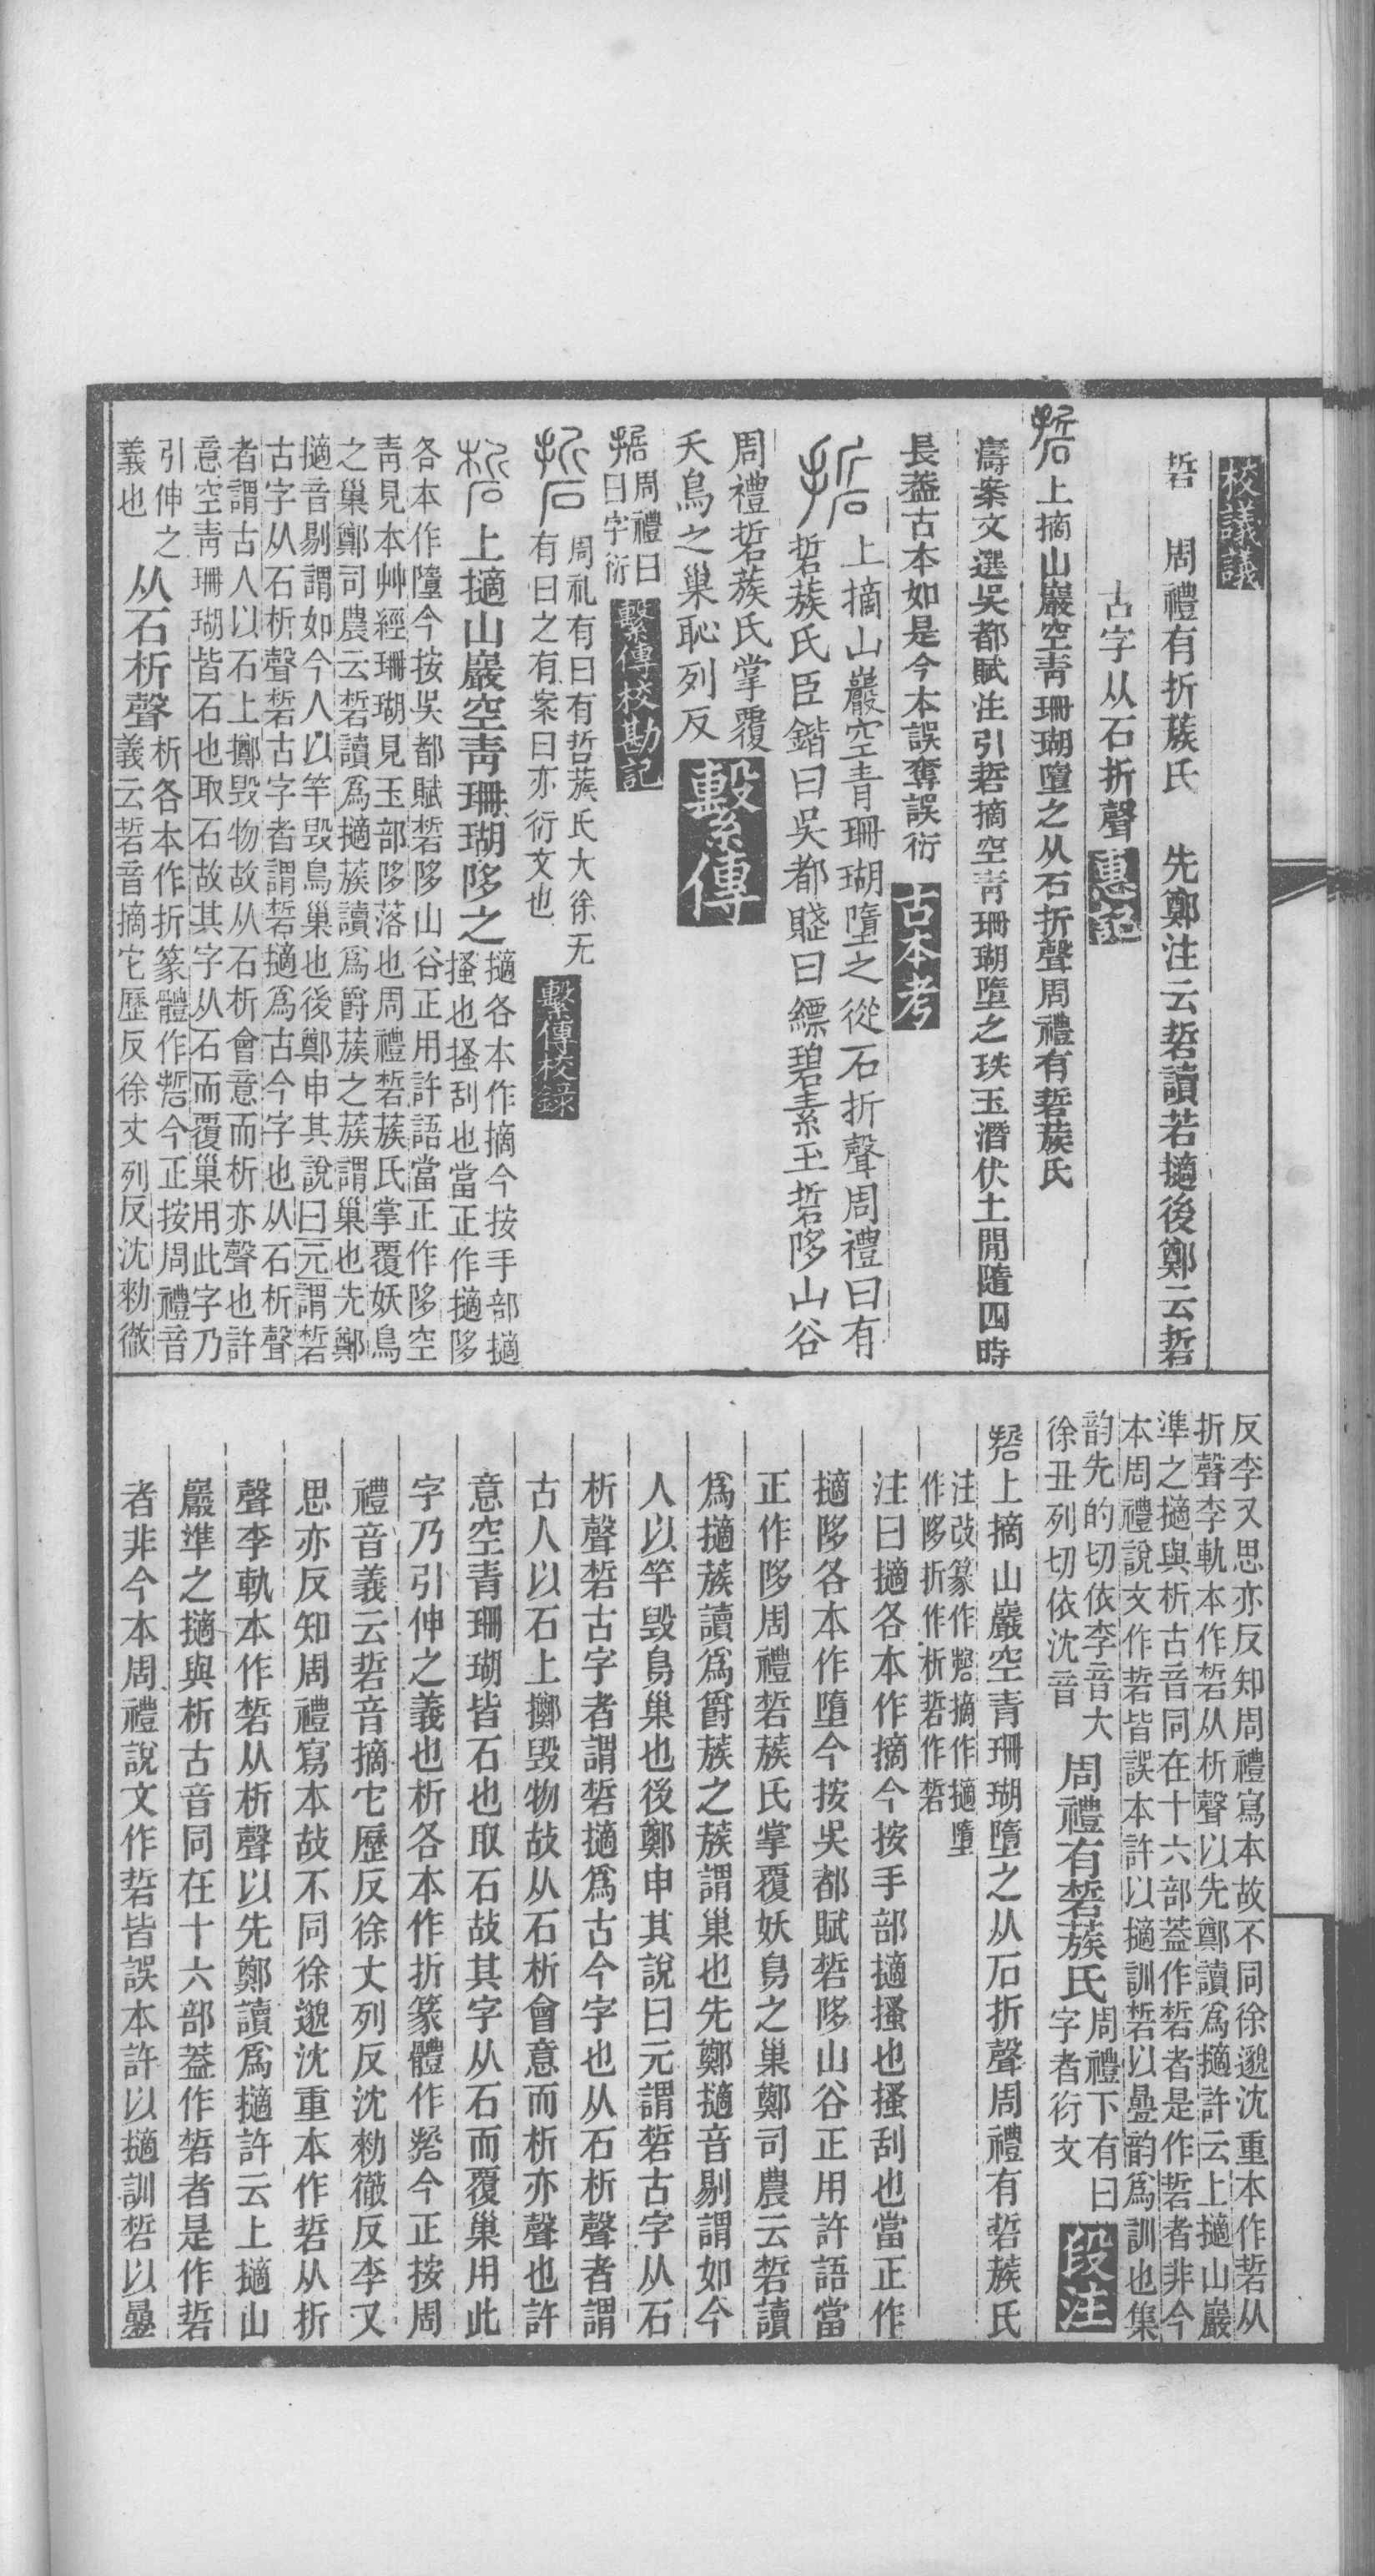 校議議
硩　周禮有折蔟氏　先鄭注云硩讀若擿後鄭云硩
古字从石折聲　惠記
硩上摘山巖空靑珊瑚墮之从石折聲周禮有硩蔟氏
濤案文選吳都賦注引硩摘空靑珊瑚墮之玞玉潛伏土閒隨四時
長葢古本如是今本誤奪誤衍　古本考
硩上摘山巖空青珊瑚墮之從石折聲周禮曰有
硩蔟氏臣鍇曰吳都賦曰縹碧素玉硩陊山谷
周禮硩蔟氏掌覆
夭鳥之巢恥列反　繫傳
硩周禮曰
曰字衍　繫傳校勘記
硩周礼有曰有硩蔟氏大徐无
有曰之有案曰亦衍文也　繫傳校錄
硩上擿山巖空靑珊瑚陊之擿各本作摘今按手部擿
搔也搔刮也當正作擿陊
各本作墮今按吳都賦硩陊山谷正用許語當正作陊空
靑見本艸經珊瑚見玉部陊落也周禮硩蔟氏掌覆妖鳥
之巢鄭司農云硩讀爲擿蔟讀爲爵蔟之蔟謂巢也先鄭
擿音剔謂如今人以竿毀鳥巢也後鄭申其說曰元謂硩
古字从石析聲硩古字者謂硩擿爲古今字也从石析聲
者謂古人以石上擲毀物故从石析會意而析亦聲也許
意空靑珊瑚皆石也取石故其字从石而覆巢用此字乃
引伸之
義也　从石析聲析各本作折篆體作硩今正按周禮音
義云硩音摘它歷反徐丈列反沈勑徹
反李又思亦反知周禮寫本故不同徐邈沈重本作硩从
折聲李軌本作硩从析聲以先鄭讀爲擿許云上擿山巖
準之擿與析古音同在十六部葢作硩者是作硩者非今
本周禮說文作硩皆誤本許以擿訓硩以曡韵爲訓也集
韵先的切依李音大
徐丑列切依沈音　周禮有硩蔟氏周禮下有曰
字者衍文　段注
硩上摘山巖空青珊瑚墮之从石折聲周禮有硩蔟氏
注改篆作硩摘作擿墮
作陊折作析硩作硩
注曰擿各本作摘今按手部擿搔也搔刮也當正作
擿陊各本作墮今按吳都賦硩陊山谷正用許語當
正作陊周禮硩蔟氏掌覆妖鳥之巢鄭司農云硩讀
爲擿蔟讀爲爵蔟之蔟謂巢也先鄭擿音剔謂如今
人以竿毀鳥巢也後鄭申其說曰元謂硩古字从石
析聲硩古字者謂硩擿爲古今字也从石析聲者謂
古人以石上擲毀物故从石析會意而析亦聲也許
意空青珊瑚皆石也取石故其字从石而覆巢用此
字乃引伸之義也析各本作折篆體作硩今正按周
禮音義云硩音摘它歷反徐丈列反沈勑徹反李又
思亦反知周禮寫本故不同徐邈沈重本作硩从折
聲李軌本作硩从析聲以先鄭讀爲擿許云上擿山
巖準之擿與析古音同在十六部葢作硩者是作硩
者非今本周禮說文作硩皆誤本許以擿訓硩以曡